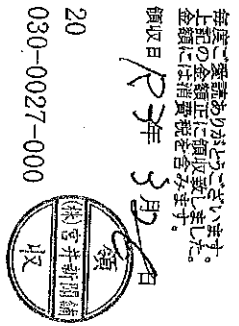 毎度ご愛読ありがとうございます。
上記の金額正に領収致しました。
金額には消費税を含みます。
領収日 R 7年 3月 日
20
030-0027-000
領
(株)宮井新聞舗
収